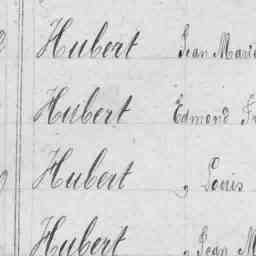 Hubert Jean Marie
Hubert Edmond Fr
Hubert „ Louis
Hubert „ Jean M